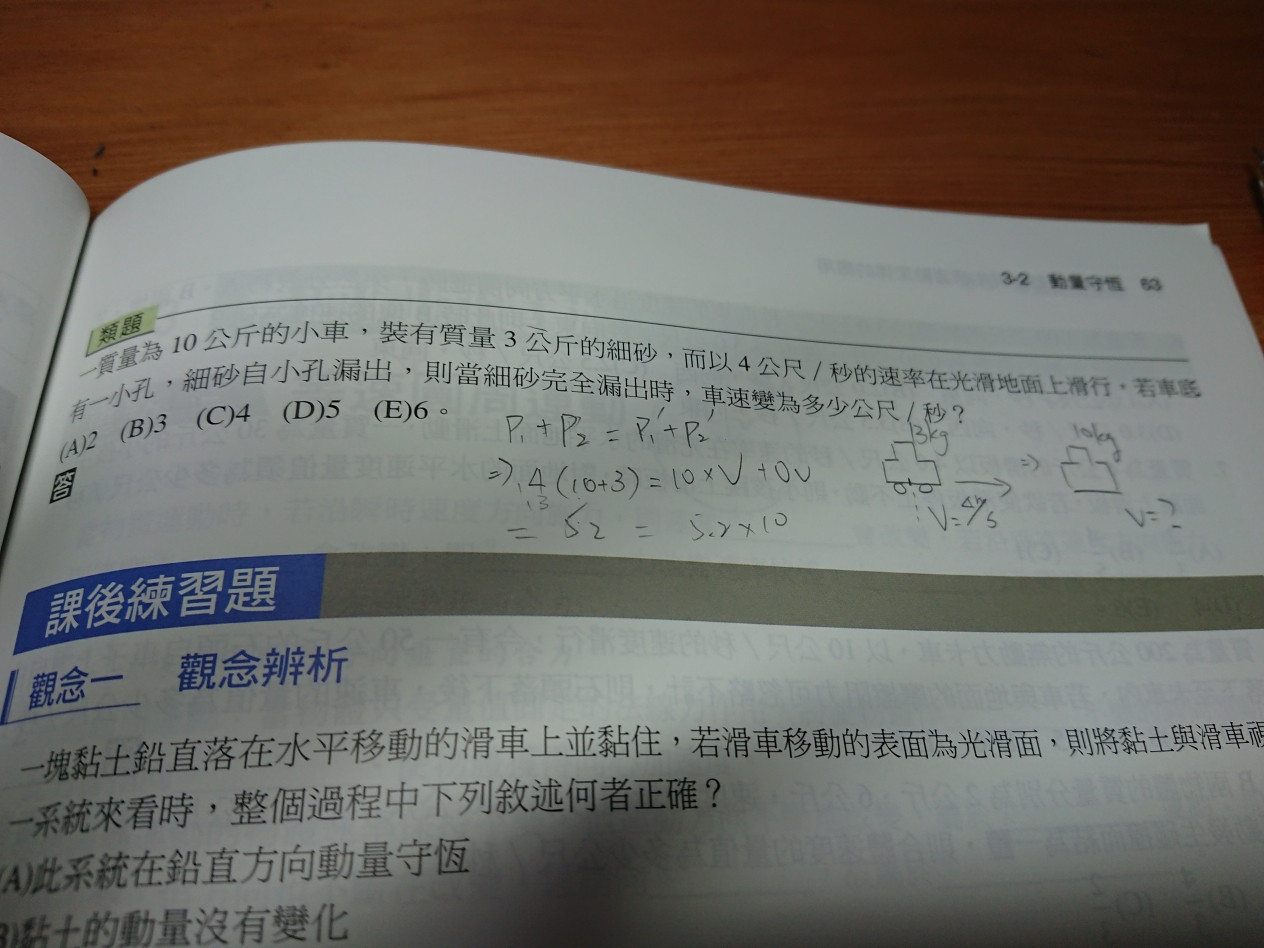 3-2 動量守恆 63
類題
一質量為 10 公斤的小車，裝有質量 3 公斤的細砂，而以 4 公尺／秒的速率在光滑地面上滑行，若車底
有一小孔，細砂自小孔漏出，則當細砂完全漏出時，車速變為多少公尺／秒？
(A)2 (B)3 (C)4 (D)5 (E)6。
答
P₁ + P₂ = P₁' + P₂'
⇒ 4 (10+3) = 10 × V + 0V
13
= 52 = 5.2×10
3kg
V = 4m/s
⇒
10kg
V = ?
課後練習題
觀念一 觀念辨析
一塊黏土鉛直落在水平移動的滑車上並黏住，若滑車移動的表面為光滑面，則將黏土與滑車視
一系統來看時，整個過程中下列敘述何者正確？
(A)此系統在鉛直方向動量守恆
B)黏土的動量沒有變化